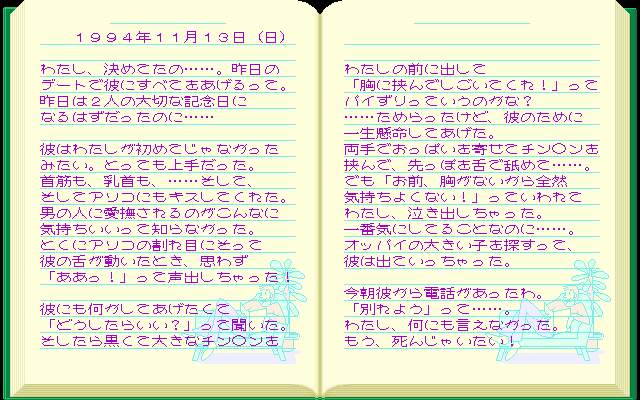 1994年11月13日（日）
わたし、決めてたの……。昨日の
デートで彼にすべてをあげるって。
昨日は2人の大切な記念日に
なるはずだったのに……
彼はわたしが初めてじゃなかった
みたい。とっても上手だった。
首筋も、乳首も、……そして、
そしてアソコにもキスしてくれた。
男の人に愛撫されるのがこんなに
気持ちいいって知らなかった。
とくにアソコの割れ目にそって
彼の舌が動いたとき、思わず
「ああっ！」って声出しちゃった！
彼にも何かしてあげたくて
「どうしたらいい？」って聞いた。
そしたら黒くて大きなチン○ンを
わたしの前に出して
「胸に挟んでしごいてくれ！」って
パイずりっていうのかな？
……ためらったけど、彼のために
一生懸命してあげた。
両手でおっぱいを寄せてチン○ンを
挟んで、先っぽを舌で舐めて……。
でも「お前、胸がないから全然
気持ちよくない！」っていわれて
わたし、泣き出しちゃった。
一番気にしてることなのに……。
オッパイの大きい子を探すって、
彼は出ていっちゃった。
今朝彼から電話があったわ。
「別れよう」って……。
わたし、何にも言えなかった。
もう、死んじゃいたい！